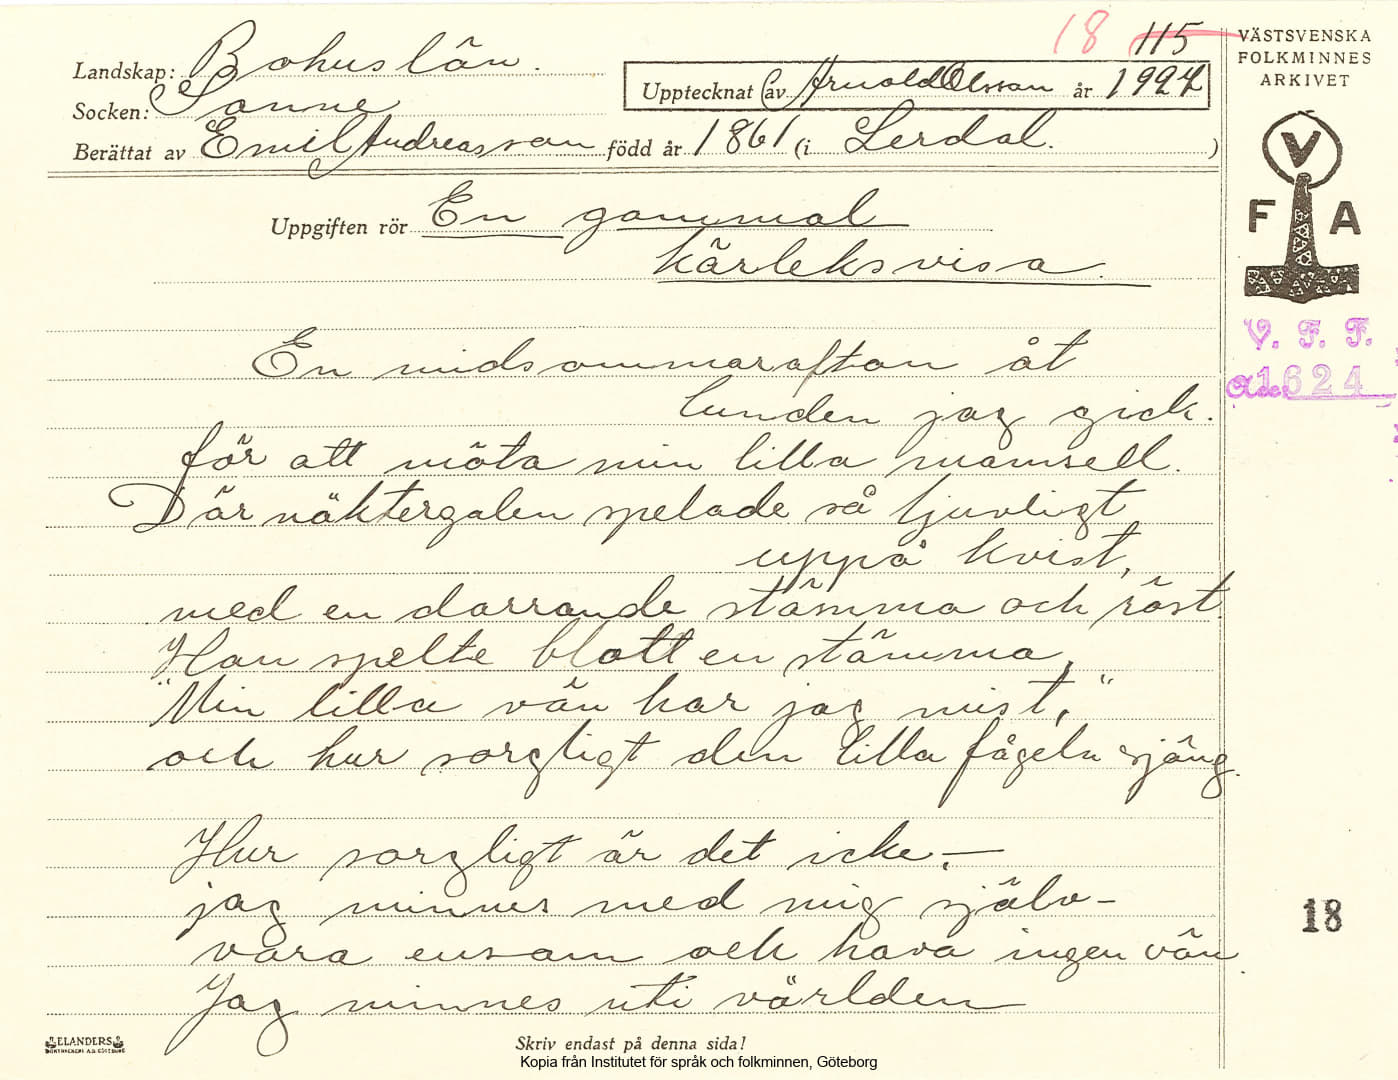 18 115
VÄSTSVENSKA
FOLKMINNES
ARKIVET
Landskap: Bohuslän.
Upptecknat av Arnold Olsson år 1927
Socken: Sanne
Berättat av Emil Andreasson född år 1861 (i Lerdal. )
V
F A
Uppgiften rör En gammal
kärleksvisa.
V. F. F.
Acc. 1624
En midsommarafton åt
lunden jag gick.
för att möta min lilla mamsell.
Där näktergalen spelade så ljuvligt
uppå kvist,
med en darrande stämma och röst.
Han spelte blott en stämma,
"Min lilla vän har jag mist,"
och hur sorgligt den lilla fågeln sjöng.
Hur sorgligt är det icke, –
jag minnes med mig själv –
vara ensam och hava ingen vän.
Jag minnes uti världen
18
ELANDERS
BOKTRYCKERI A.B. GÖTEBORG
Skriv endast på denna sida!
Kopia från Institutet för språk och folkminnen, Göteborg